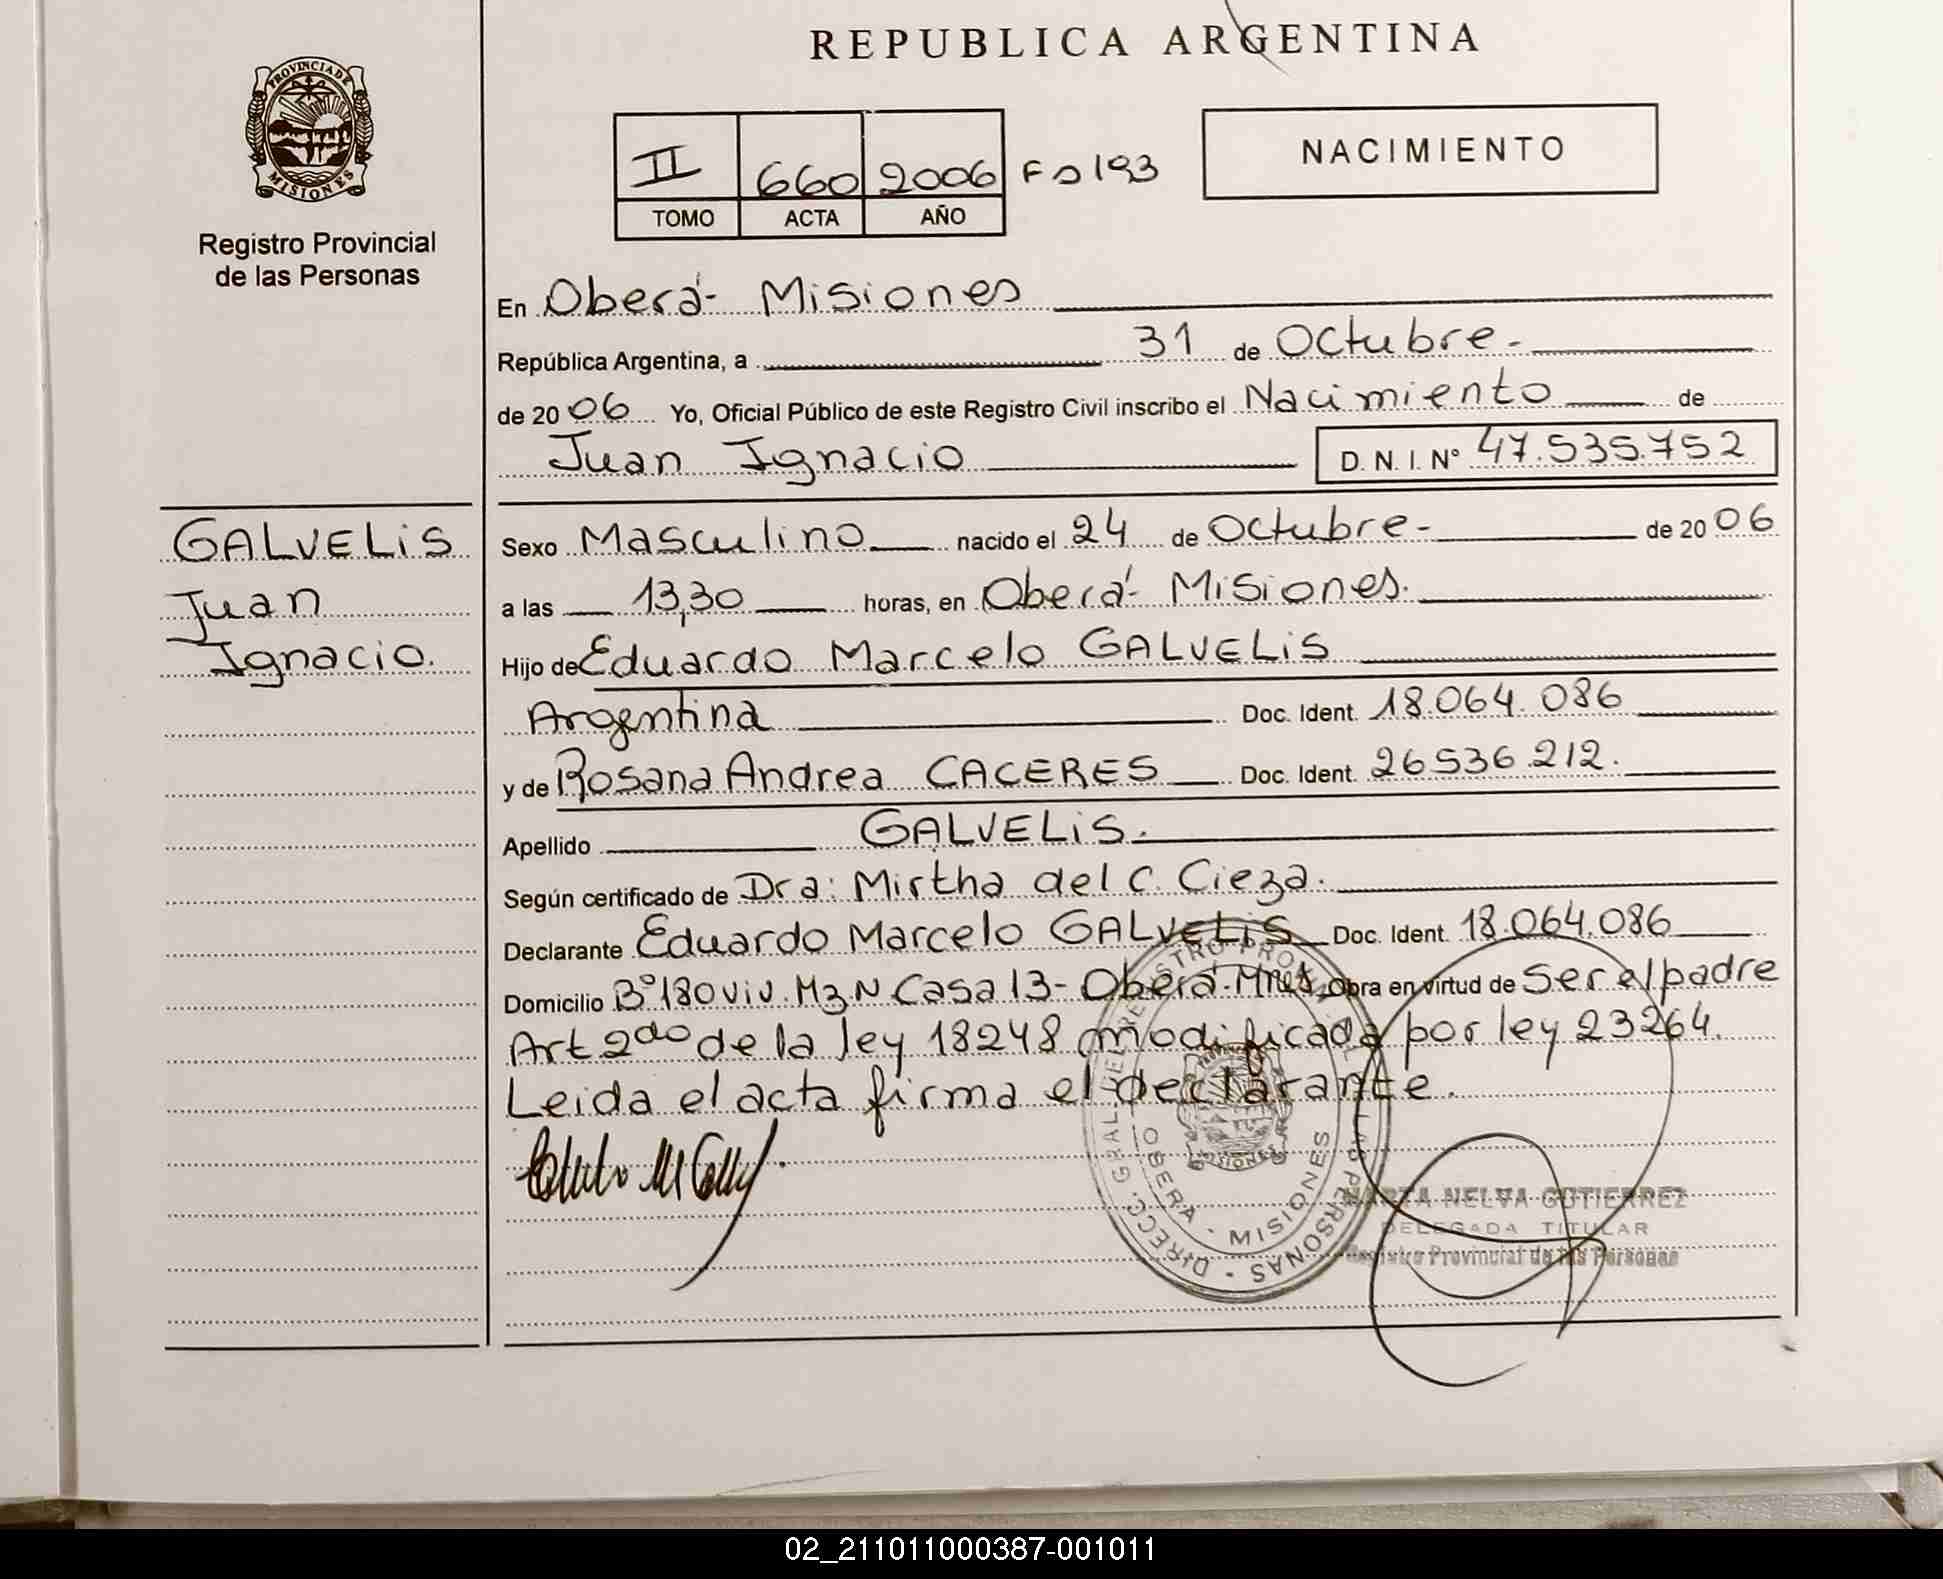 REPUBLICA ARGENTINA
PROVINCIA DE
MISIONES
Registro Provincial
de las Personas
II 660 2006 Fo 193
TOMO ACTA AÑO
NACIMIENTO
En Oberá- Misiones
República Argentina, a 31 de Octubre-
de 2006 Yo, Oficial Público de este Registro Civil inscribo el Nacimiento de
Juan Ignacio D.N.I. Nº 47.535.752
GALVELIS
Juan
Ignacio.
Sexo Masculino nacido el 24 de Octubre- de 2006
a las 13,30 horas, en Oberá- Misiones.
Hijo de Eduardo Marcelo GALVELIS
Argentina Doc. Ident. 18.064.086
y de Rosana Andrea CACERES Doc. Ident. 26536.212.
Apellido GALVELIS.
Según certificado de Dra: Mirtha del C. Cieza.
Declarante Eduardo Marcelo GALVELIS Doc. Ident. 18.064.086
Domicilio Bº180viv. Mz N Casa 13- Oberá- Mnes, Obra en virtud de Ser el padre
Art 2do de la ley 18248 modificada por ley 23264.
Leida el acta firma el declarante.
DIRECC. GRAL DEL REGISTRO PROVINCIAL DE LAS PERSONAS
OBERA - MISIONES
MARTA NELVA GUTIERREZ
DELEGADA TITULAR
Registro Provincial de las Personas
02_211011000387-001011